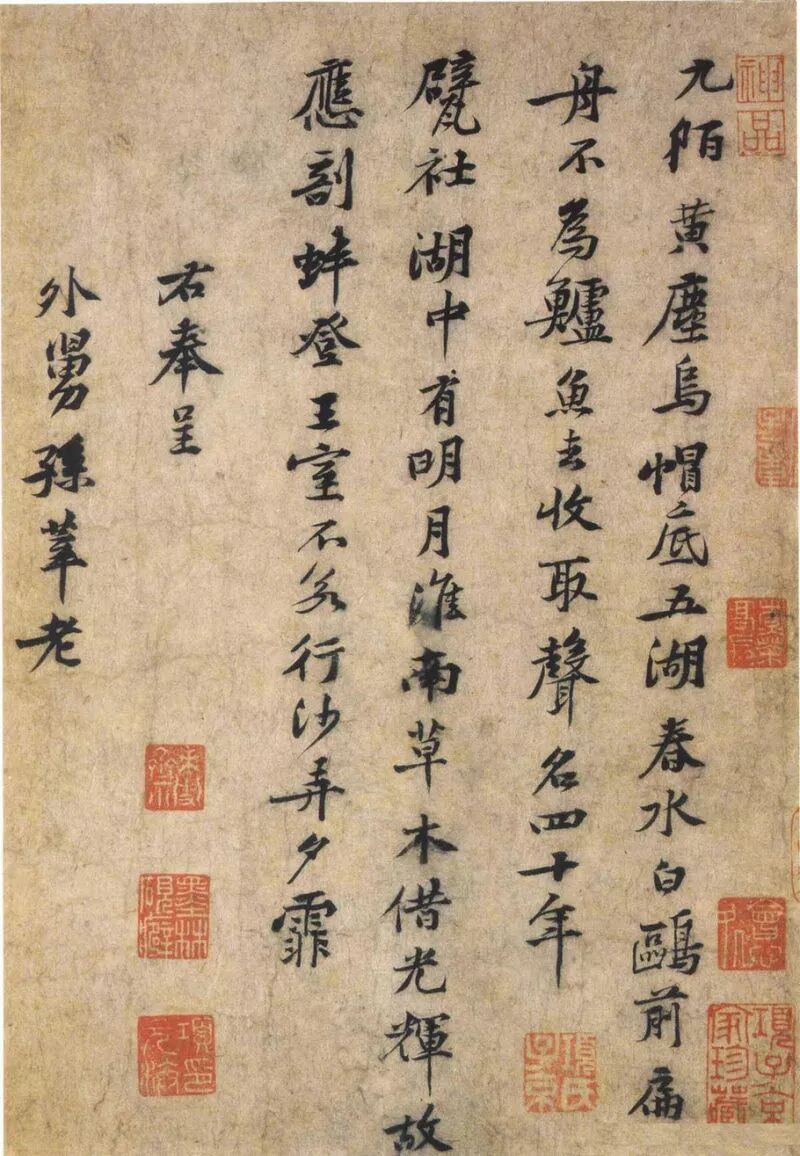 神品
項子京家珍藏
九陌黃塵烏帽底五湖春水白鷗前扁
舟不為鱸魚去收取聲名四十年
項氏子京
甓社湖中有明月淮南草木借光輝故
應剖蚌登王室不若行沙弄夕霏
右奉呈
外舅孫莘老